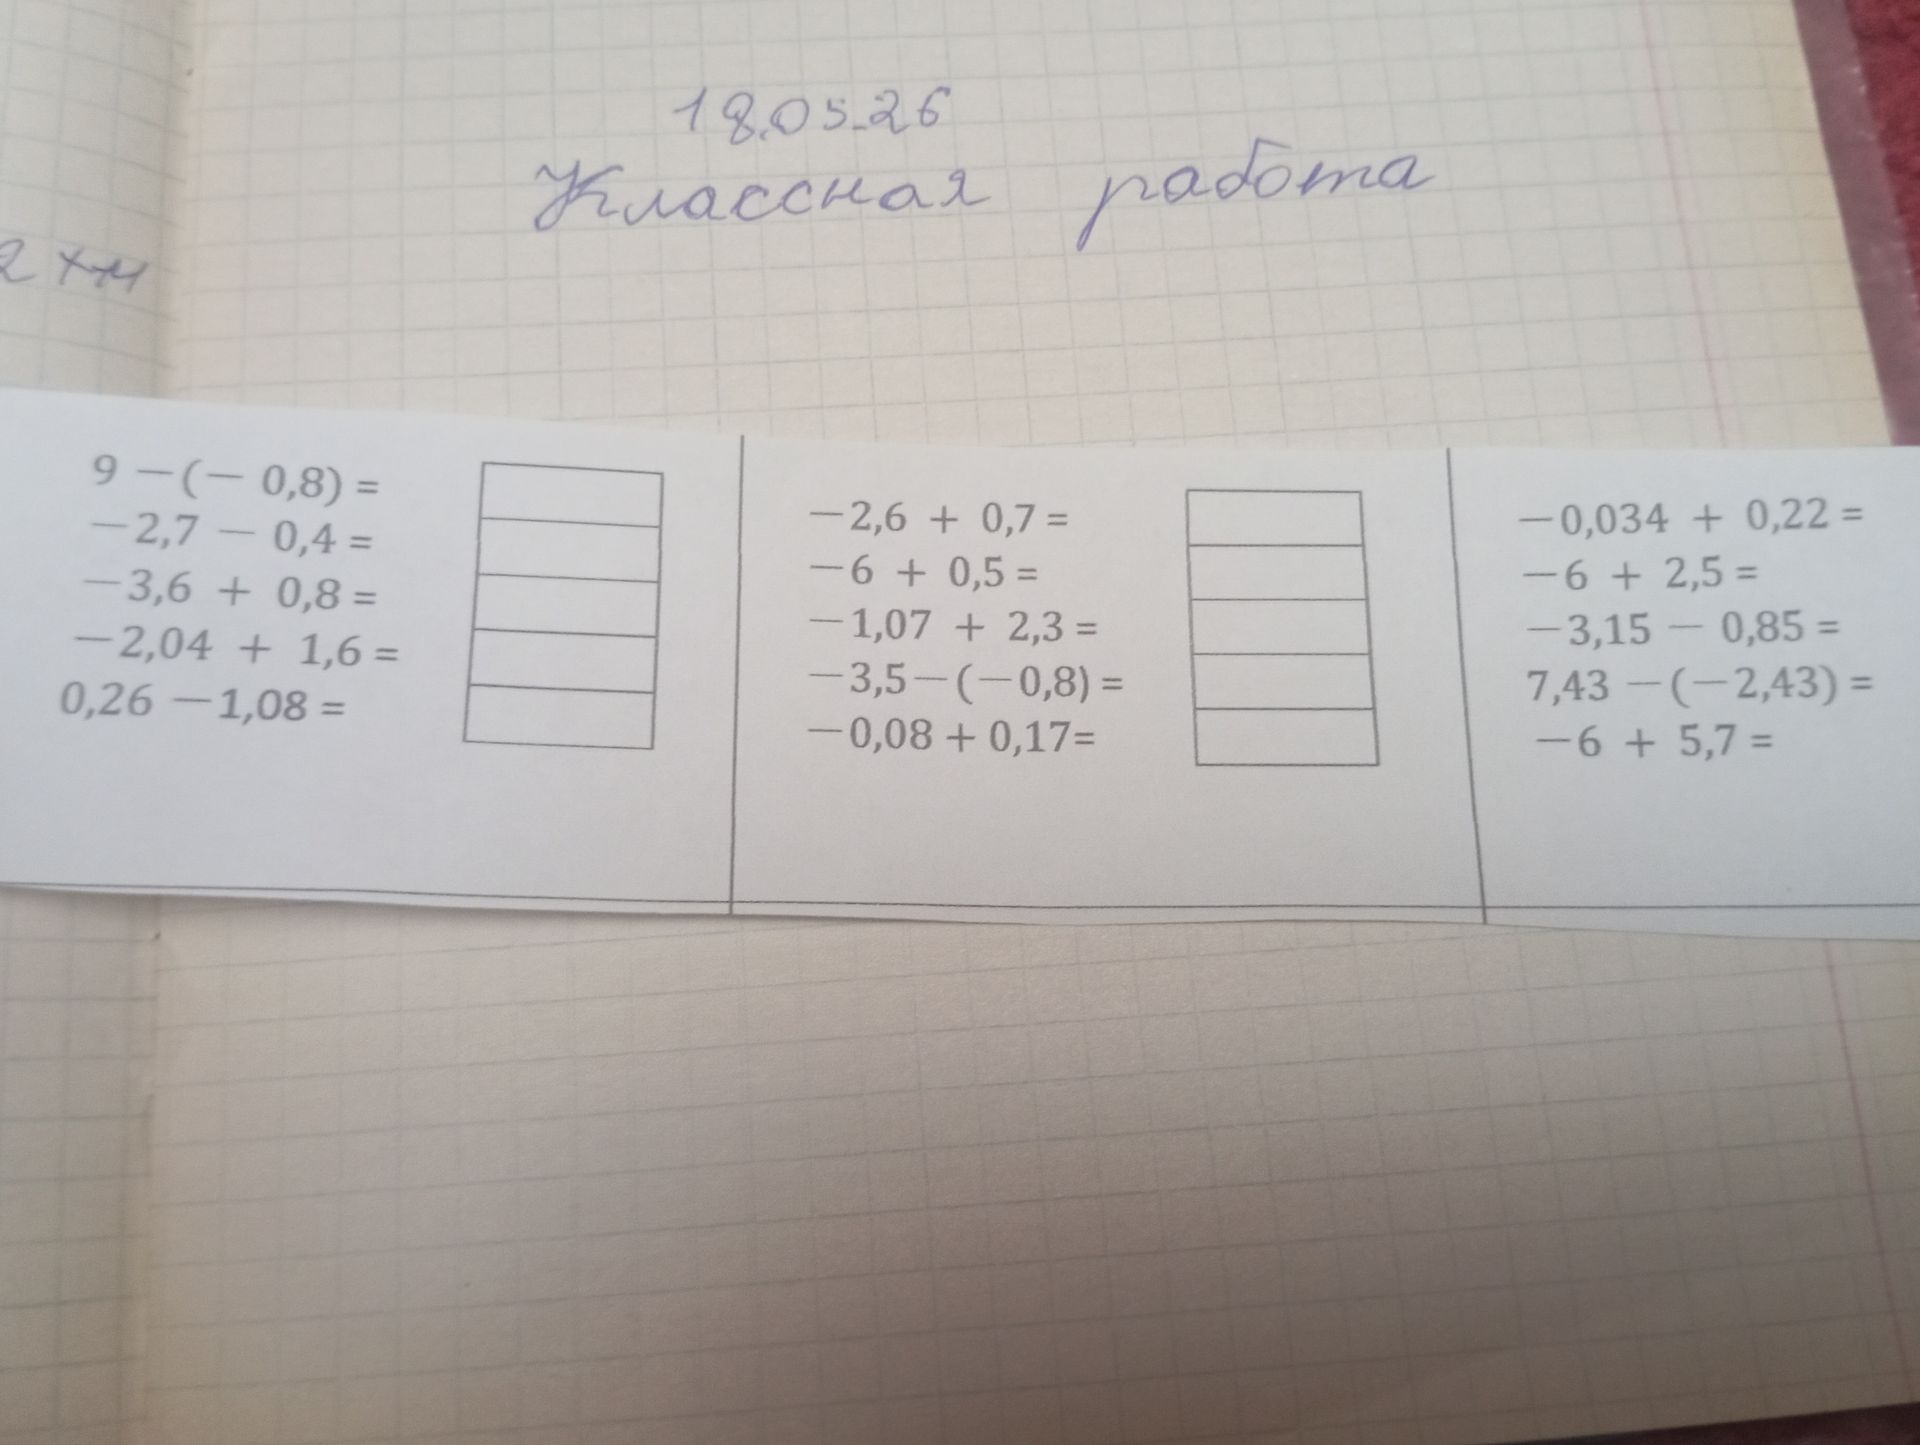 18.05.26
Классная работа
9 −(− 0,8) =
−2,7 − 0,4 =
−3,6 + 0,8 =
−2,04 + 1,6 =
0,26 −1,08 =
−2,6 + 0,7 =
−6 + 0,5 =
−1,07 + 2,3 =
−3,5−(−0,8) =
−0,08 + 0,17=
−0,034 + 0,22 =
−6 + 2,5 =
−3,15 − 0,85 =
7,43 −(−2,43) =
−6 + 5,7 =